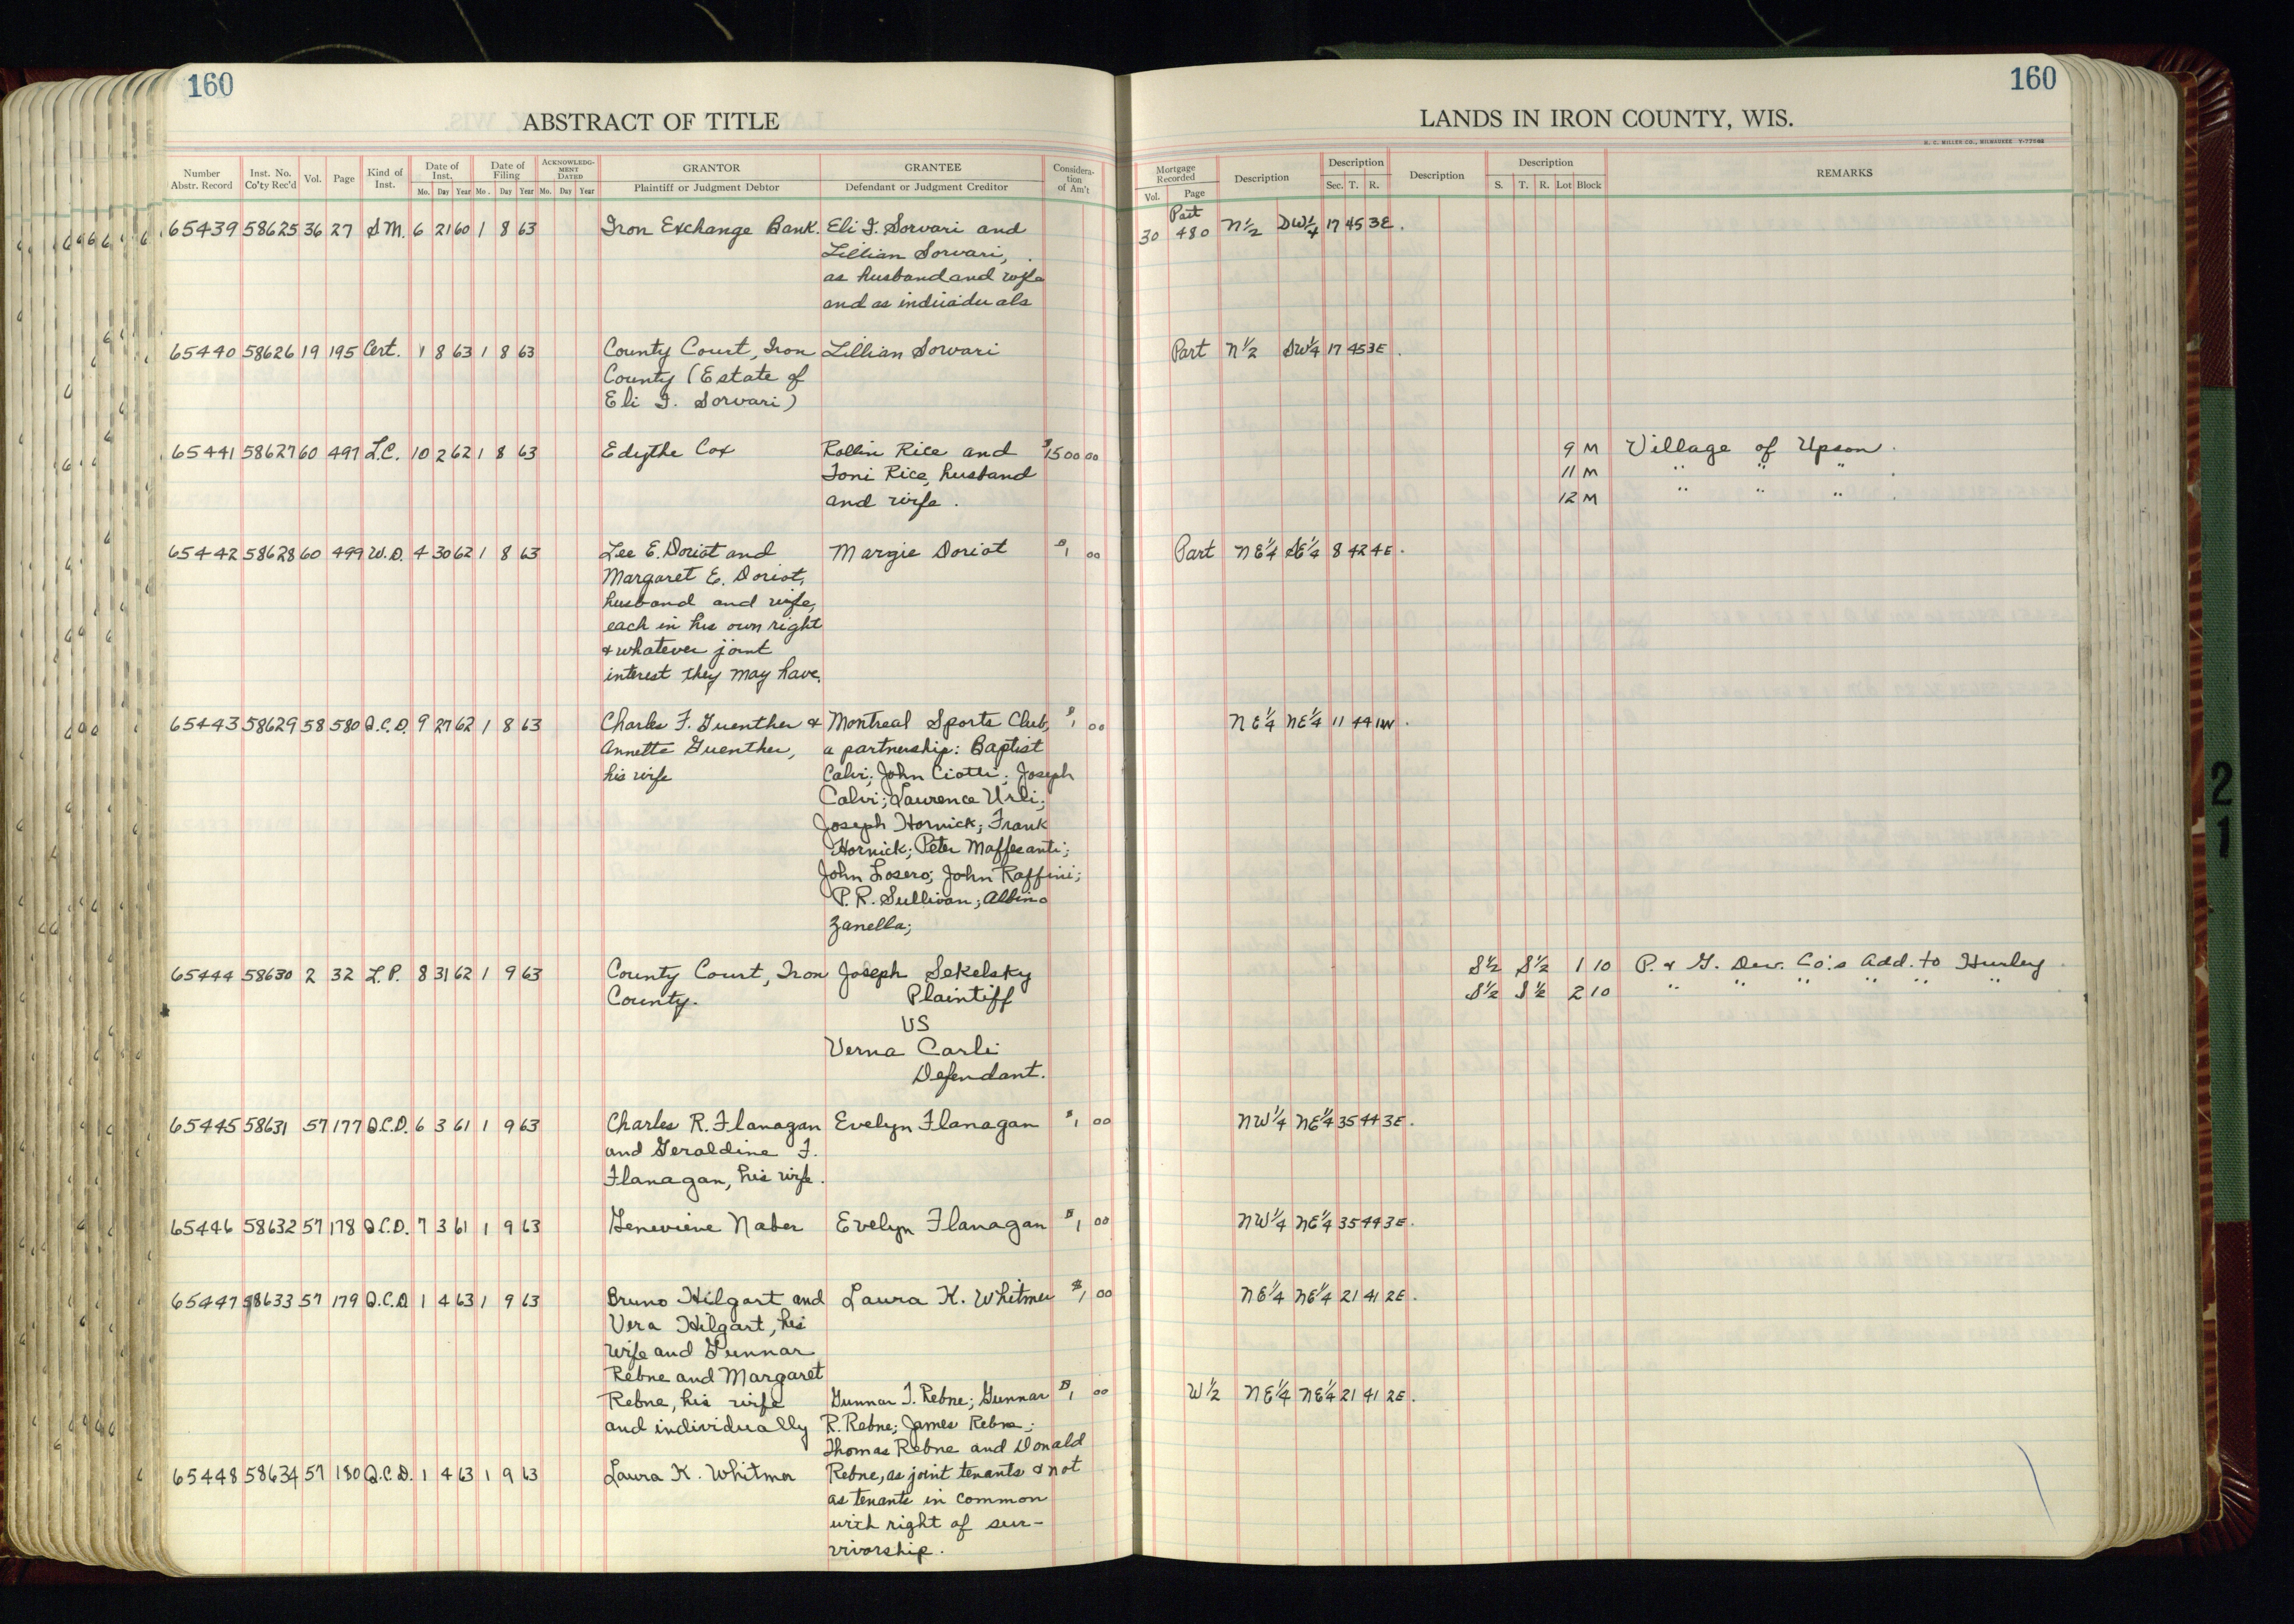 160
ABSTRACT OF TITLE
Number Abstr. Record | Inst. No. Co'ty Rec'd | Vol. | Page | Kind of Inst. | Date of Inst. Mo. Day Year | Date of Filing Mo. Day Year | ACKNOWLEDGMENT DATED Mo. Day Year | GRANTOR Plaintiff or Judgment Debtor | GRANTEE Defendant or Judgment Creditor | Consideration of Am't
65439 58625 36 27 S.M. 6 21 60 1 8 63 Iron Exchange Bank. Eli I. Sorvari and
Lillian Sorvari,
as husband and wife
and as individuals
65440 58626 19 195 Cert. 1 8 63 1 8 63 County Court, Iron Lillian Sorvari
County (Estate of
Eli I. Sorvari)
65441 58627 60 497 L.C. 10 2 62 1 8 63 Edythe Cox Rollin Rice and $1500 00
Toni Rice, husband
and wife.
65442 58628 60 499 W.D. 4 30 62 1 8 63 Lee E. Doriot and Margie Doriot $1 00
Margaret E. Doriot,
husband and wife,
each in his own right
& whatever joint
interest they may have.
65443 58629 58 580 Q.C.D. 9 27 62 1 8 63 Charles F. Guenther & Montreal Sports Club, $1 00
Annette Guenther, a partnership: Baptist
his wife Calvi; John Ciotti; Joseph
Calvi; Laurence Urli;
Joseph Hornick; Frank
Hornick; Peter Maffesanti;
John Losero; John Raffini;
P.R. Sullivan; Albino
Zanella;
65444 58630 2 32 L.P. 8 31 62 1 9 63 County Court, Iron Joseph Sekelsky
County. Plaintiff
VS
Verna Carli
Defendant.
65445 58631 57 177 Q.C.D. 6 3 61 1 9 63 Charles R. Flanagan Evelyn Flanagan $1 00
and Geraldine F.
Flanagan, his wife.
65446 58632 57 178 Q.C.D. 7 3 61 1 9 63 Genevieve Naber Evelyn Flanagan $1 00
65447 58633 57 179 Q.C.D 1 4 63 1 9 63 Bruno Hilgart and Laura K. Whitmer $1 00
Vera Hilgart, his
wife and Gunnar
Rebne and Margaret
Rebne, his wife Gunnar T. Rebne; Gunnar $1 00
and individually R. Rebne; James Rebne;
Thomas Rebne and Donald
65448 58634 57 180 Q.C.D. 1 4 63 1 9 63 Laura K. Whitmer Rebne, as joint tenants & not
as tenants in common
with right of sur-
vivorship.
160
LANDS IN IRON COUNTY, WIS.
H. C. MILLER CO., MILWAUKEE
Mortgage Recorded Vol. Page | Description | Description Sec. T. R. | Description | Description S. T. R. Lot Block | REMARKS
Part
30 480 N½ SW¼ 17 45 3E.
Part N½ SW¼ 17 45 3E.
9 M Village of Upson.
11 M " " " .
12 M " " " .
Part NE¼ SE¼ 8 42 4E.
NE¼ NE¼ 11 44 1W.
S½ S½ 1 10 P. & G. Dev. Co.'s Add. to Hurley
S½ S½ 2 10 " " " " " "
NW¼ NE¼ 35 44 3E.
NW¼ NE¼ 35 44 3E.
NE¼ NE¼ 21 41 2E.
W½ NE¼ NE¼ 21 41 2E.
21